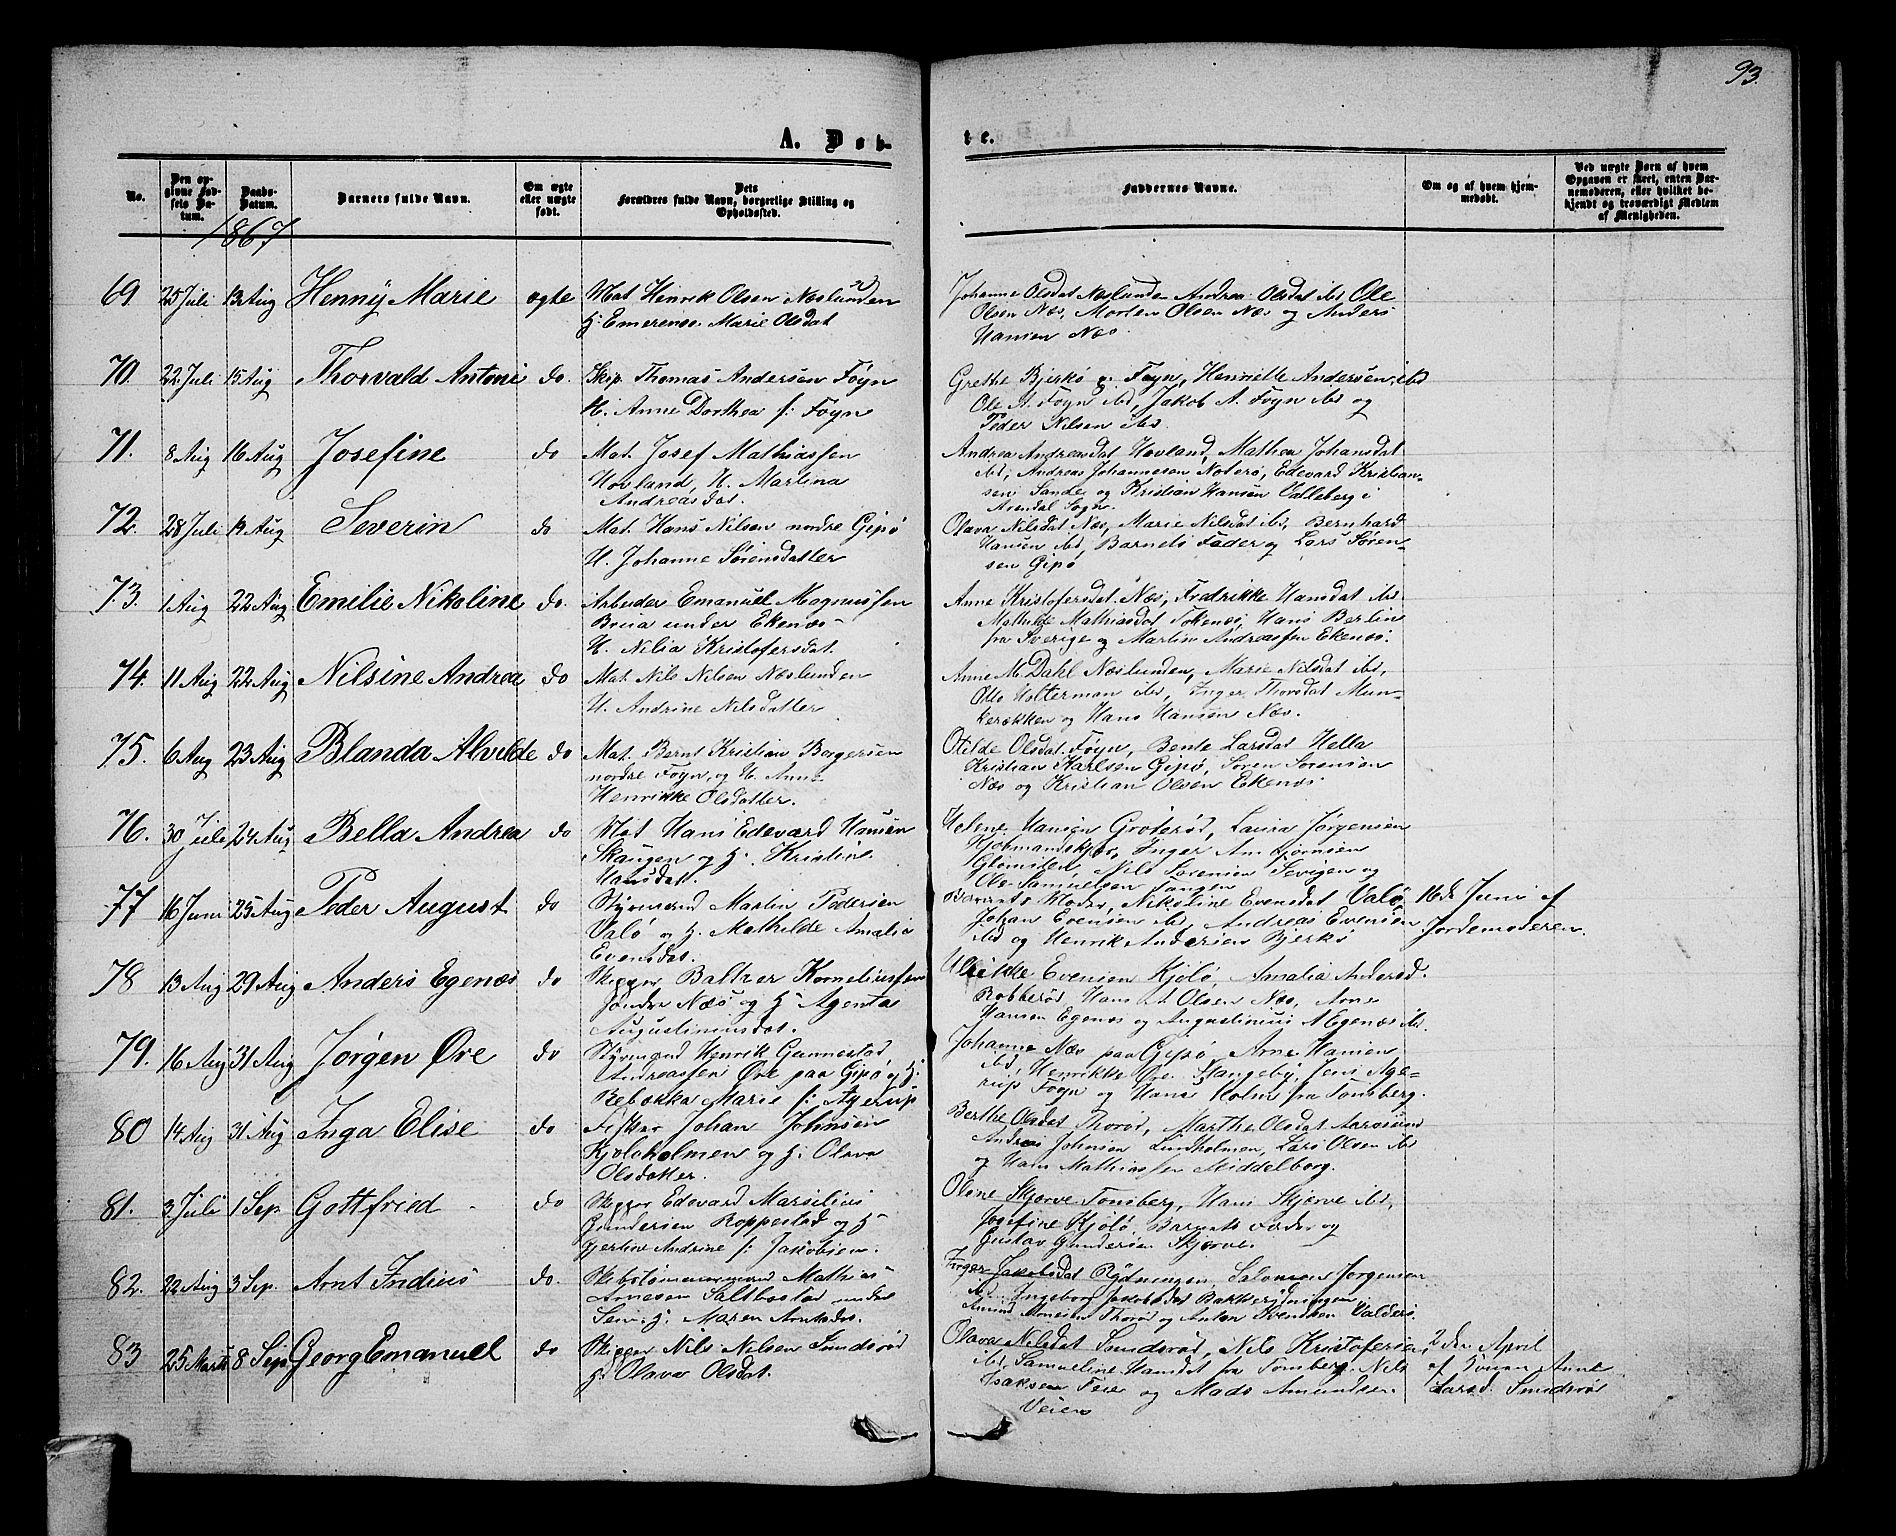 93.
A. Døb-
te.
No.
Den op-
givne Fød-
sels Da-
tum.
Daabs-
Datum.
Barnets fulde Navn.
Om ægte
eller uægte
født.
Dets
Forældres fulde Navn, borgerlige Stilling og
Opholdssted.
Faddernes Navne.
Om og af hvem hjem-
medøbt.
Ved uægte Børn af hvem
Opgaven er skeet, enten Bar-
nemoderen, eller hvilket be-
kjendt og troværdigt Medlem
af Menigheden.
1867
69 25 Juli 13 Aug Henny Marie ægte Mat Henrik Olsen Næslunden
H: Emerense Marie Olsdat
Johanne Olsdat Næslunden Andrea Olsdat ibd Ole
Olsen Næs, Morten Olsen Næs og Anders
Hansen Næs.
70. 22 Juli 15 Aug Thorvald Antoni do. Skip. Thomas Andersen Føyn
H. Anne Dorthea f: Føyn
Grethe Bjerkø p. Føyn, Henriette Andersen, ibd
Ole A. Føyn ibd, Jakob A. Føyn ibd og
Peder Nilsen ibd
71. 8 Aug 16 Aug Josefine do Mat. Josef Mathiassen
Hovland, H. Martina
Andreasdat.
Andrea Andreasdat Hovland, Mathea Johansdat
ibd, Andreas Johannesen Noterø, Edevard Kristian-
sen Sande og Kristian Hansen Valleberg i
Arendal Sogn.
72. 28 Juli 19 Aug Severin do Mat. Hans Nilsen nordre Gipø
H. Johanne Sørensdatter
Olava Nilsdat Næs, Marie Nilsdat ibd, Bernhard
Hansen ibd, Barnets Fader og Lars Søren-
sen Gipø
73. 1 Aug 22 Aug Emilie Nikoline do. Arbeider Emanuel Magnussen
Bria under Ekenæs
H. Nilia Kristofersdat.
Anne Kristofersdat Næs, Fredrikke Hansdat ibd
Mathilde Mathiasdat Tokenes, Hans Berlin
fra Sverige og Martin Andreassen Ekenæs.
74. 11 Aug 22 Aug Nilsine Andrea do Mat. Nils Nilsen Næslunden
H. Andrine Nilsdatter
Anne M. Dahl Næslunden, Marie Nilsdat ibd,
Otto Holterman ibd, Inger Thorsdat Mun-
kerækken og Hans Hansen Næs.
75. 6 Aug 23 Aug Blanda Alvilde do Mat. Bernt Kristian Borgersen
nordre Føyn, og H. Anne
Henrikke Olsdatter.
Otilde Olsdat Føyn, Bente Larsdat Hella
Kristian Karlsen Gipø, Søren Sørensen
Næs og Kristian Olsen Ekenæs
76. 30 Juli 24 Aug Bella Andrea do Mat Hans Edevard Hansen
Skaugen og H. Kristine
Hansdat.
Helene Hansen Grøterød, Laura Jørgensen
Kjøbmandskjær, Inger
Glomsten, Nils Sørensen Sevigen og
Ole Samuelsen Tangen
77 16 Juni 25 Aug Peder August do Styrmand Martin Pedersen
Valø og H. Mathilde Amalia
Evensdat.
Barnets Moder, Nikoline Evensdat Valø,
Johan Evensen ibd, Andreas Evensen
ibd og Henrik Andersen Bjerkø
16de Juni af
Jordemoderen.
78 13 Aug 29 Aug Anders Egenæs do Skipper Baltzer Korneliussen
søndre Næs og H. Agenta
Augustinusdat.
Ulrikke Evensen Kjølø, Amalia Andersd.
Robberød, Hans A Olsen Næs, Arne
Hansen Egenæs og Augustinius A Egenæs ibd.
79. 16 Aug 31 Aug Jørgen Øre do Styrmand Henrik Gunnestad
Andreassen Øre paa Gipø og H:
Rebækka Marie f: Agerup
Johanne Næs paa Gipø, Arne Hansen
ibd, Henrikke Øre Slangeby, Jens Age-
rup Føyn og Hans Holm fra Tønsberg.
80 14 Aug 31 Aug Inga Elise do Fisker Johan Johnsen
Kjøleholmen og H: Olava
Olsdatter.
Berthe Olsdat Thorød, Marthe Olsdat Aarøsund
Andreas Johnsen Lindholmen, Lars Olsen ibd
og Hans Mathiassen Middelborg.
81. 3 Juli 1 Sep. Gottfried do Skipper Edevard Marselius
Gundersen Roppestad og H.
Gjertine Andrine f: Jakobsen.
Oline Skjerve Tønsberg, Hans Skjerve ibd,
Josefine Kjølø, Barnets Fader og
Gustav Gundersen Skjerve.
82. 22 Aug 3 Sep. Arnt Indius do. Skibstømmermand Mathias
Arnesen Saltbostad under
Sem. H. Maren Arntsdat.
Inger Jakobsdat Rødningen, Salomon Jørgensen
Ingeborg Jakobsdat Bakkerødningen,
Amund Monsen Thorød og Anton Svendsen Valders.
83 25 Marts 8 Sep. Georg Emanuel do Skipper Nils Nilsen Smidsrød
H. Olava Olsdat.
Olava Nilsdat Smidsrød, Nils Kristofersen
ibd, Samueline Hansdat fra Tønsberg, Nils
Isaksen Feie og Mads Amundsen
Veien
2den April
af Konen Anne
Larsd. Smidsrød